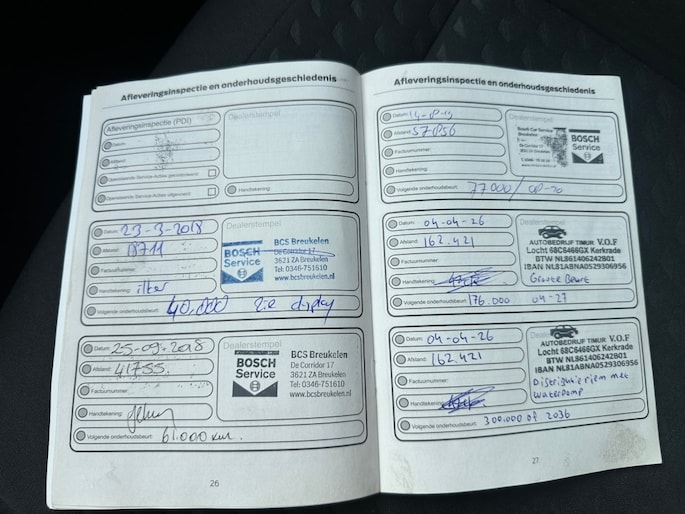 Afleveringsinspectie en onderhoudsgeschiedenis
Afleveringsinspectie (PDI)
Datum:
Afstand:
Openstaande Service-Acties gecontroleerd
Openstaande Service-Acties uitgevoerd
Dealerstempel
Handtekening:
Datum: 23-3-2018
Afstand: 18711
Factuurnummer:
Handtekening: ilker
Volgende onderhoudsbeurt: 40.000 zie display
Dealerstempel
BOSCH
Service
BCS Breukelen
De Corridor 17
3621 ZA Breukelen
Tel: 0346-751610
www.bcsbreukelen.nl
Datum: 25-09-2018
Afstand: 41755
Factuurnummer:
Handtekening:
Volgende onderhoudsbeurt: 61.000 km.
Dealerstempel
BOSCH
Service
BCS Breukelen
De Corridor 17
3621 ZA Breukelen
Tel: 0346-751610
www.bcsbreukelen.nl
26
Afleveringsinspectie en onderhoudsgeschiedenis
Datum:
Afstand: 57856
Factuurnummer:
Handtekening:
Volgende onderhoudsbeurt: 77000/
Dealerstempel
Bosch Car Service
Breukelen
De Corridor 17
BOSCH
Service
Datum: 04-04-26
Afstand: 162.421
Factuurnummer:
Handtekening:
Volgende onderhoudsbeurt: 176.000 04-27
Dealerstempel
AUTOBEDRIJF TIMUR V.O.F
Locht 68C6466GX Kerkrade
BTW NL861406242B01
IBAN NL81ABNA0529306956
Grote Beurt
Datum: 04-04-26
Afstand: 162.421
Factuurnummer:
Handtekening:
Volgende onderhoudsbeurt: 300.000 of 2036
Dealerstempel
AUTOBEDRIJF TIMUR V.O.F
Locht 68C6466GX Kerkrade
BTW NL861406242B01
IBAN NL81ABNA0529306956
Distributieriem met
Waterpomp
27